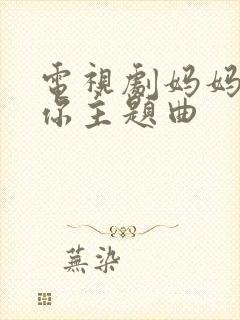 電視劇妈妈
你主題曲
蕪染